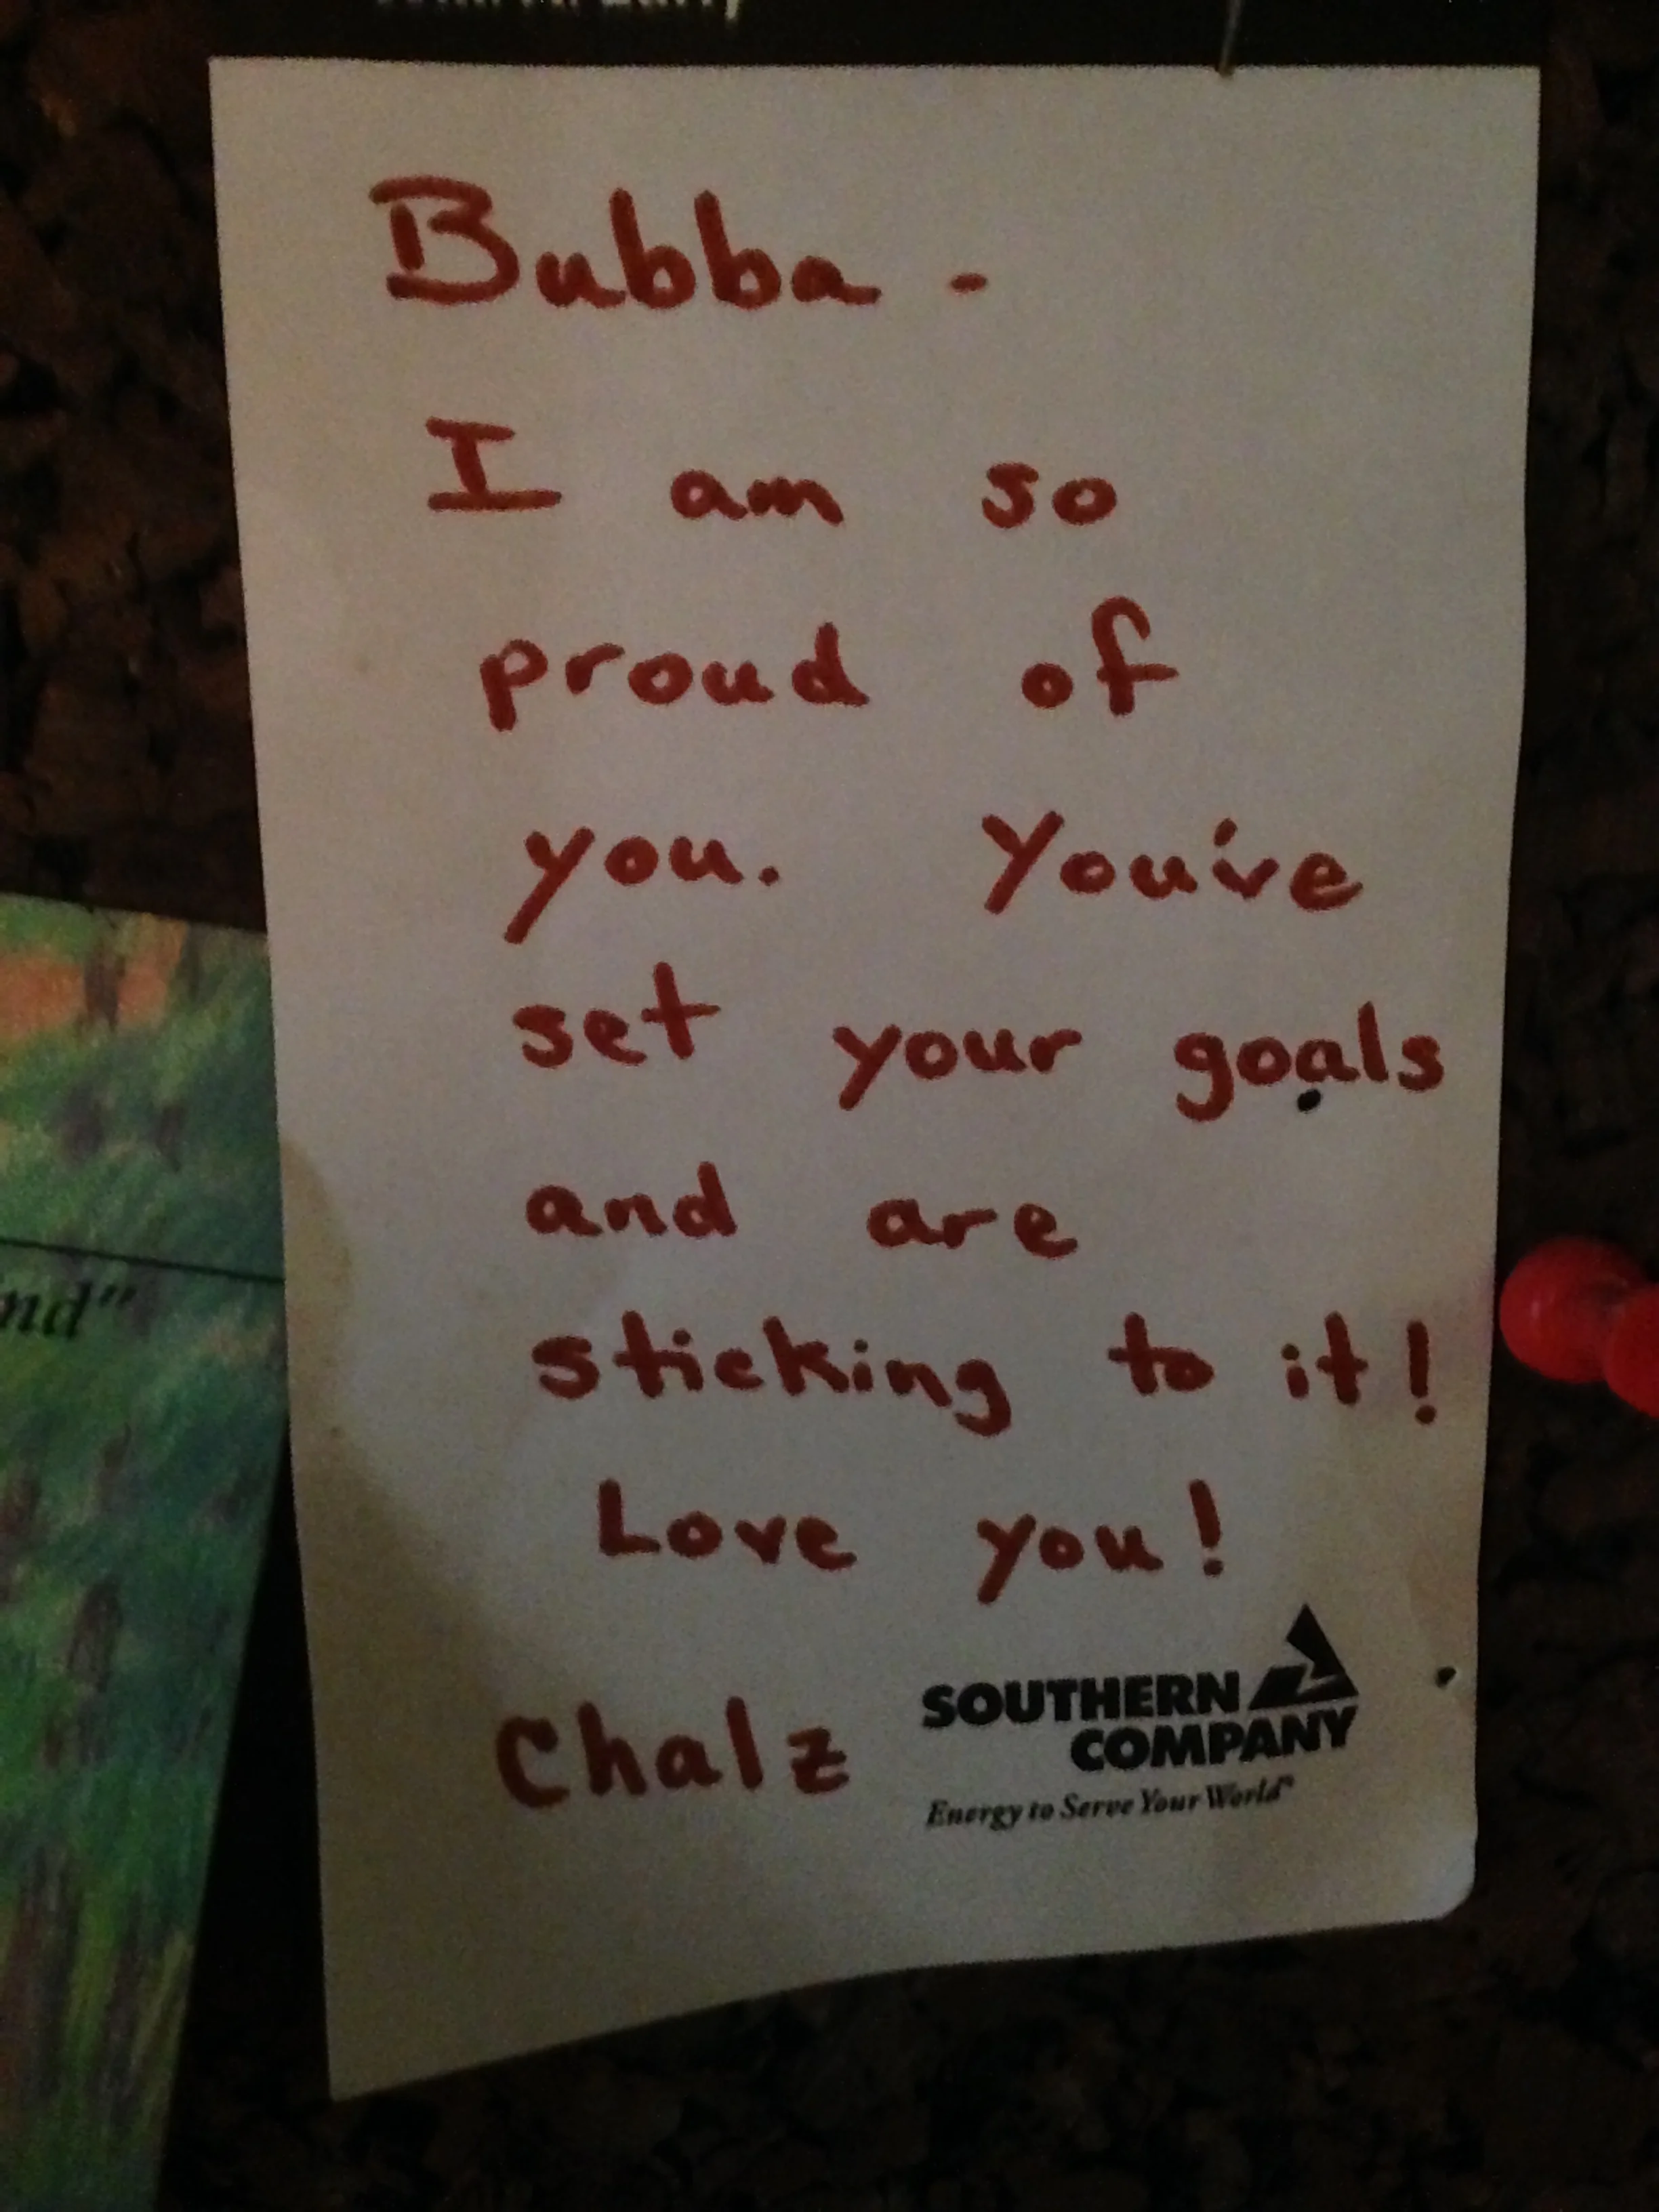 Bubba -
I am so
proud of
you. You've
set your goals
and are
sticking to it!
Love you!
Chalz
SOUTHERN
COMPANY
Energy to Serve Your World"
nd"